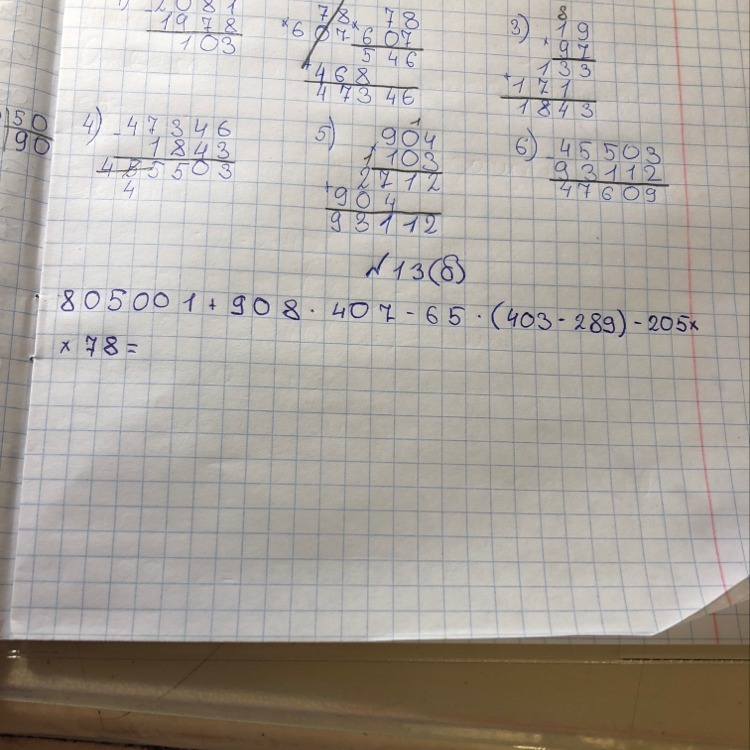 1) - 2081
1978
103
× 78
607
× 78
607
546
+ 468
47346
3) 8
× 19
97
133
+ 171
1843
50
90
4) - 47346
1843
45503
4
5) 1
904
1 103
2712
+ 904
93112
6) - 45503
93112
47609
№13(б)
805001 + 908 · 407 - 65 · (403 - 289) - 205 ×
× 78 =